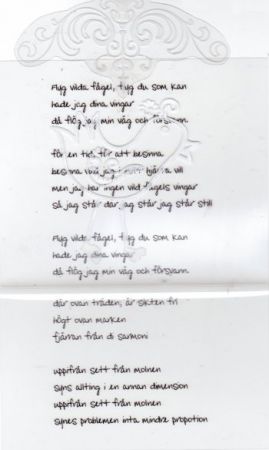 Flyg vilda fågel, flyg du som kan
hade jag dina vingar
då flög jag min väg och försvann.
för en tid, för att besinna
besinna vad jag hjärta vill
men jag har ingen vild fågels vingar
så jag står där, jag står jag står still
Flyg vilda fågel, flyg du som kan
hade jag dina vingar
då flög jag min väg och försvann.
där ovan träden, är sikten fri
högt ovan marken
fjärran från di sarmoni
uppifrån sett från molnen
syns allting i en annan dimension
uppifrån sett från molnen
synes problemen inta mindre propotion